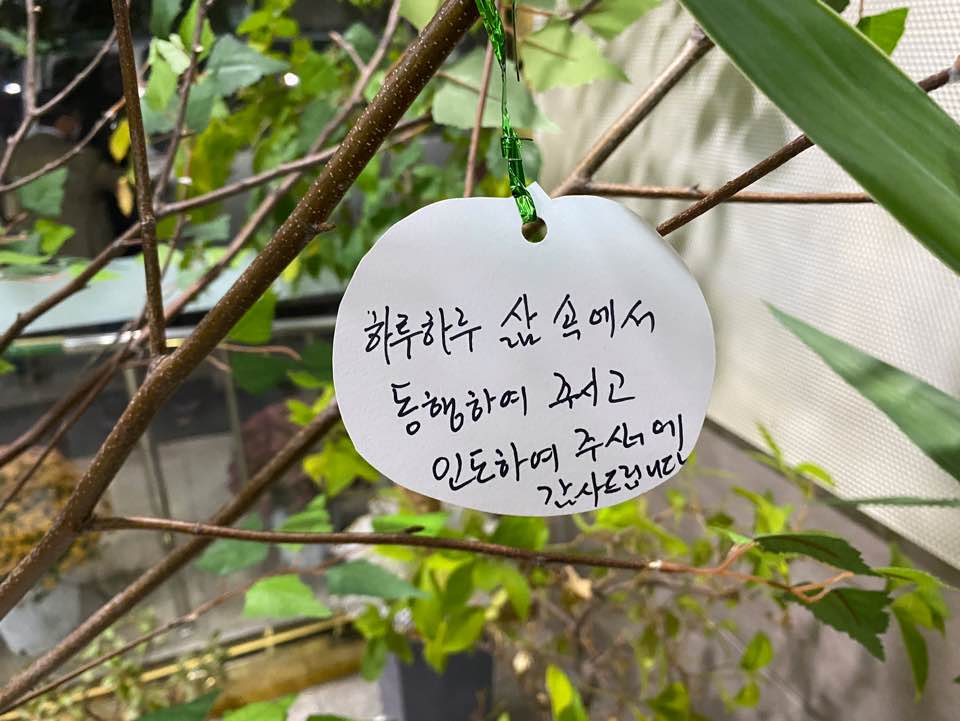 하루하루 삶 속에서
동행하여 주시고
인도하여 주심에
감사드립니다